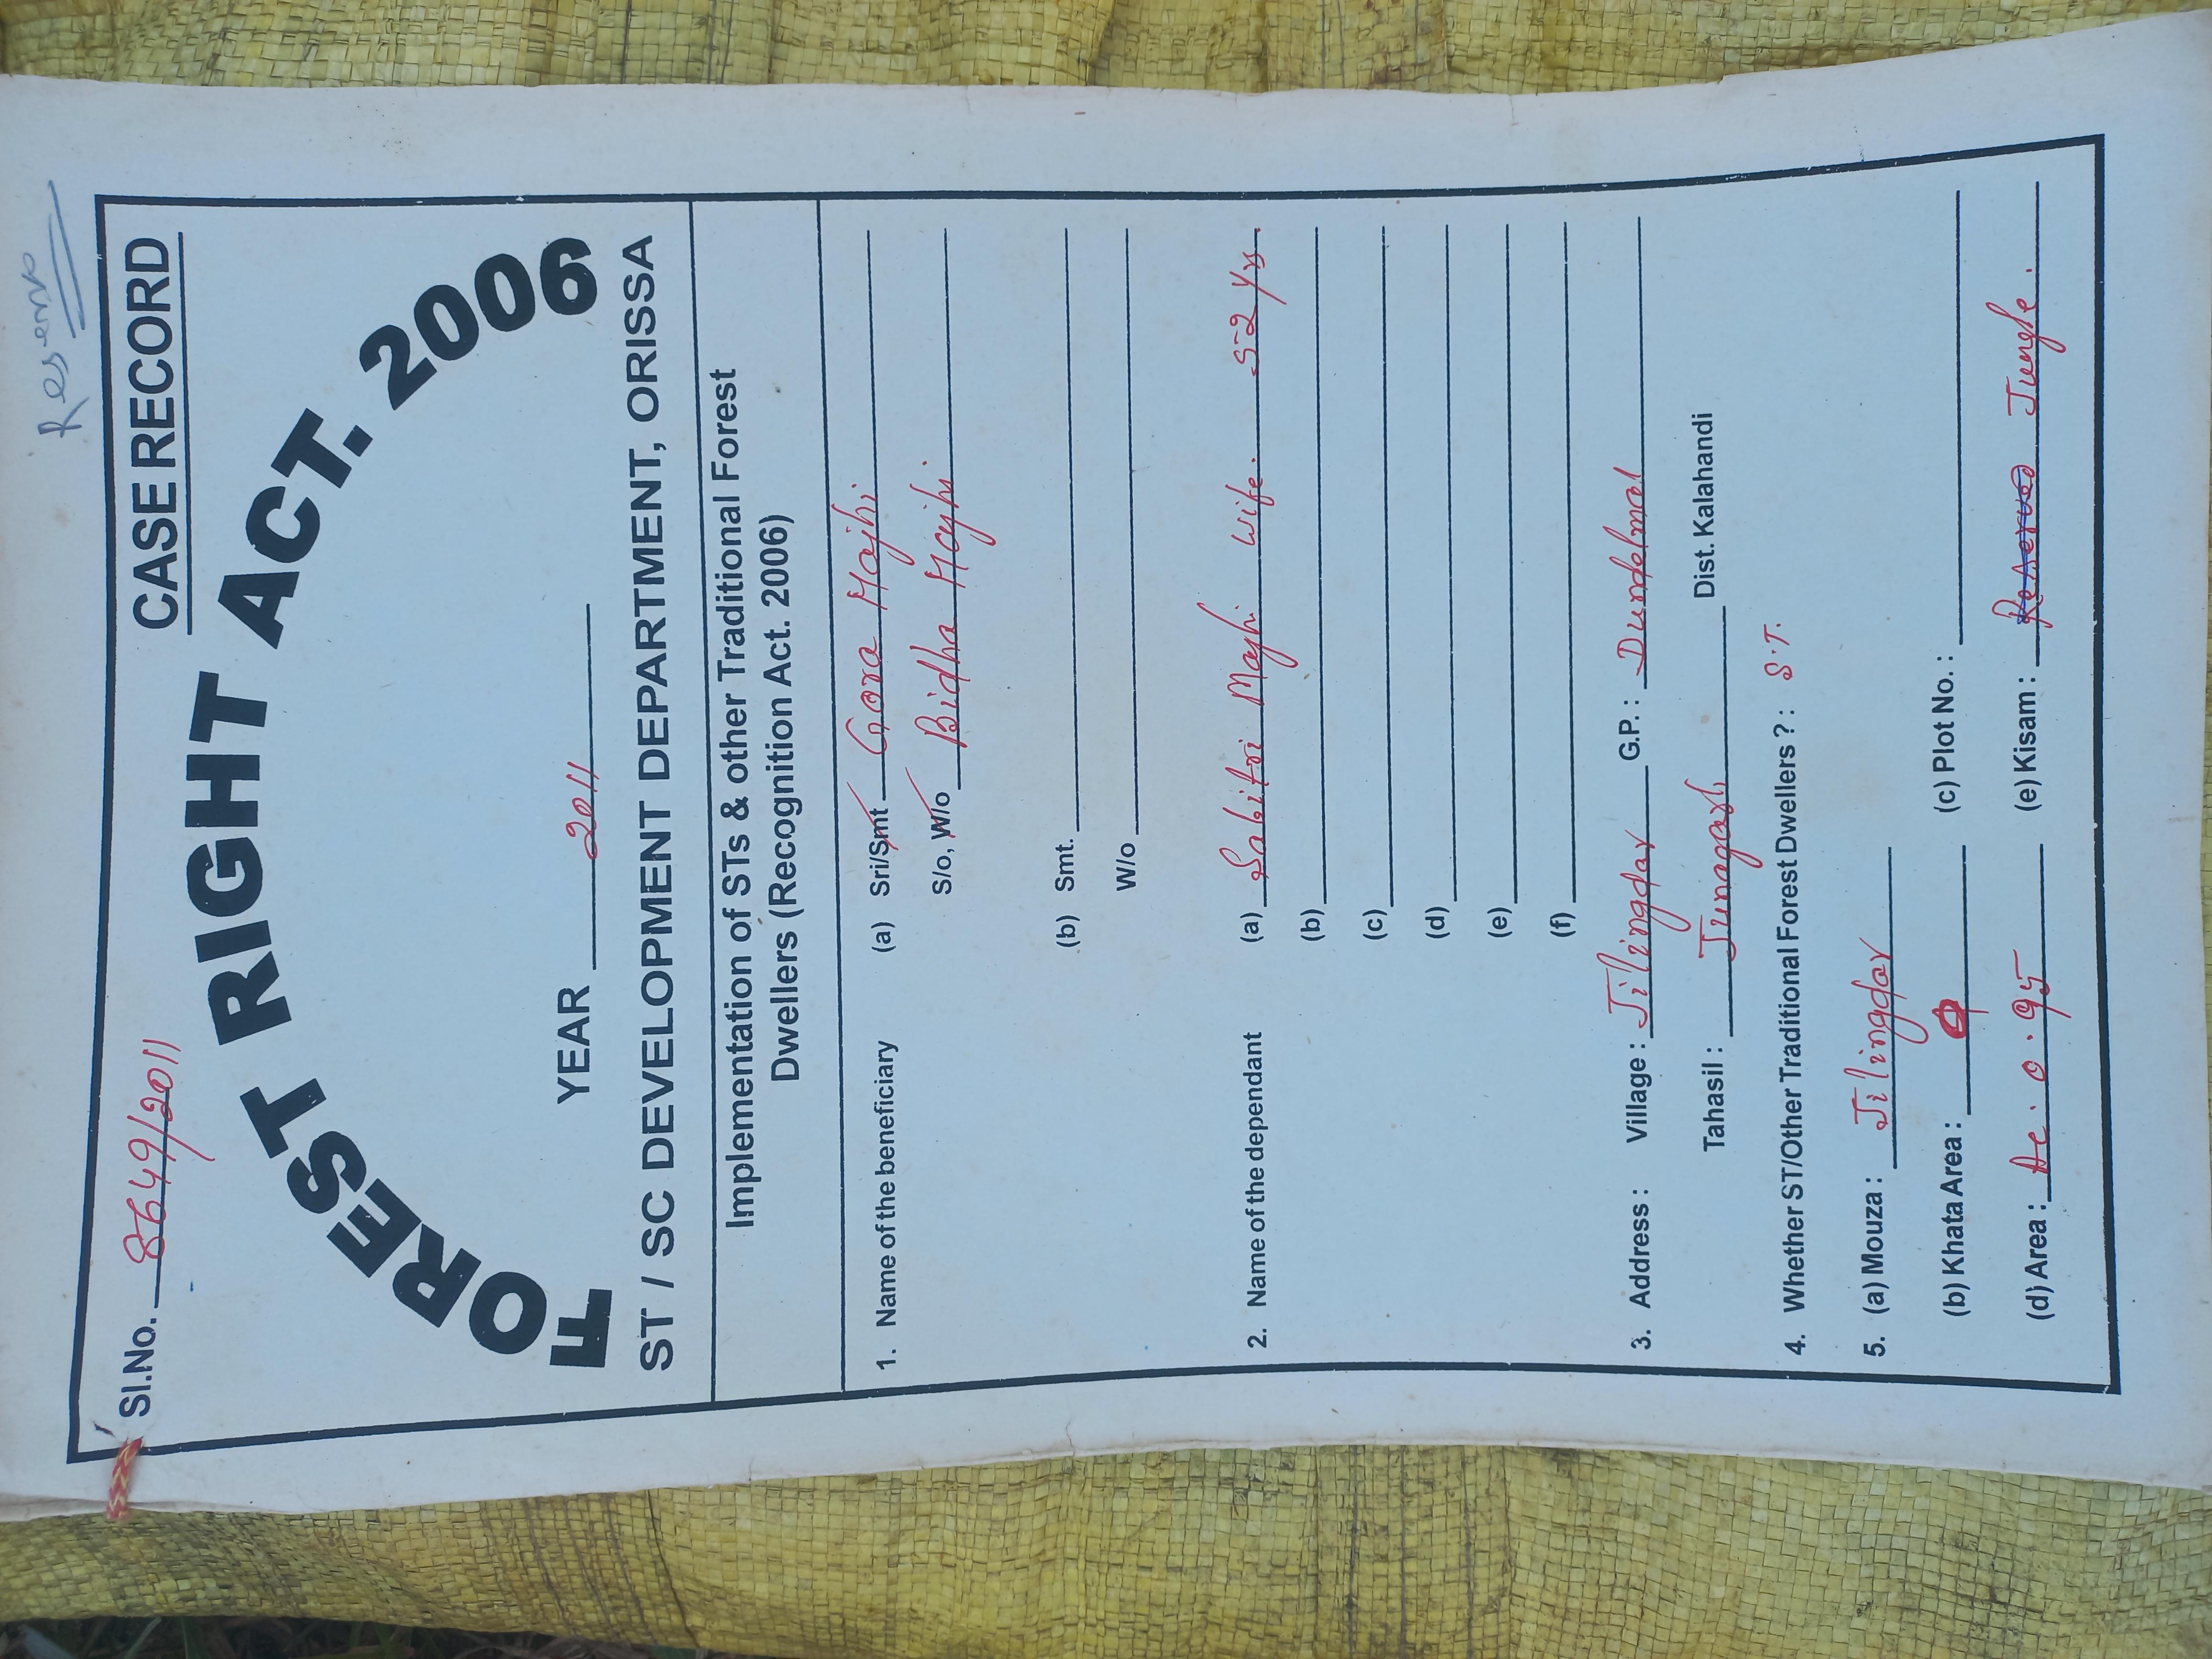 Reserve
Sl.No. 8649/2011 CASE RECORD
FOREST RIGHT ACT. 2006
YEAR 2011
ST / SC DEVELOPMENT DEPARTMENT, ORISSA
Implementation of STs & other Traditional Forest
Dwellers (Recognition Act. 2006)
1. Name of the beneficiary (a) Sri/Smt Gora Majhi
S/o, W/o Bidha Majhi
(b) Smt.
W/o
2. Name of the dependant (a) Sabitri Majhi Wife. 52 Yrs.
(b)
(c)
(d)
(e)
(f)
3. Address : Village : Jilingdar G.P. : Dundelmal
Tahasil : Junagarh Dist. Kalahandi
4. Whether ST/Other Traditional Forest Dwellers ? : S.T.
5. (a) Mouza : Jilingdar
(b) Khata Area : (c) Plot No. :
(d) Area : Ac. 0.95 (e) Kisam : Reserved Jungle.